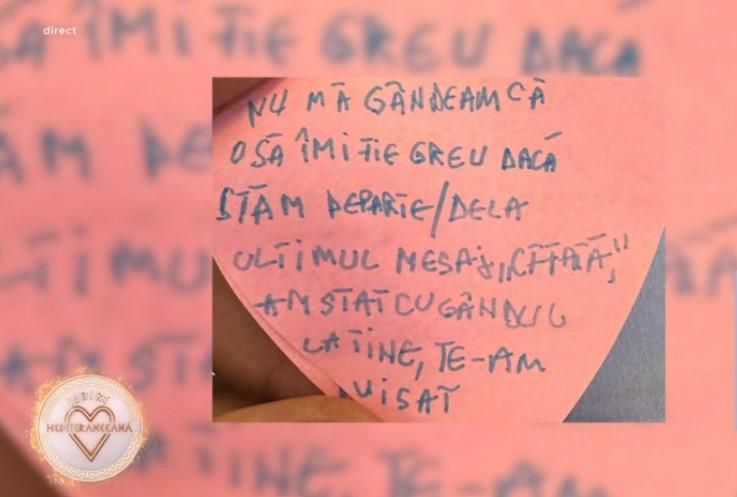 direct
NU MĂ GÂNDEAM CĂ
O SĂ ÎMI FIE GREU DACĂ
STĂM DEPARTE/DELA
ULTIMUL MESAJ,
AM STAT CU GÂNDUL
LA TINE, TE-AM
VISAT
IUBIRE
MEDITERANEEANĂ